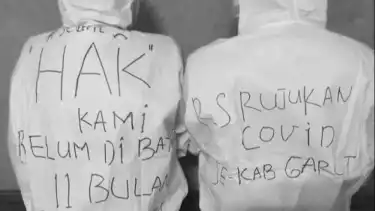 "HAK"
KAMI
BELUM DI BA
11 BULA
RS RUJUKAN
COVID
KAB GARUT